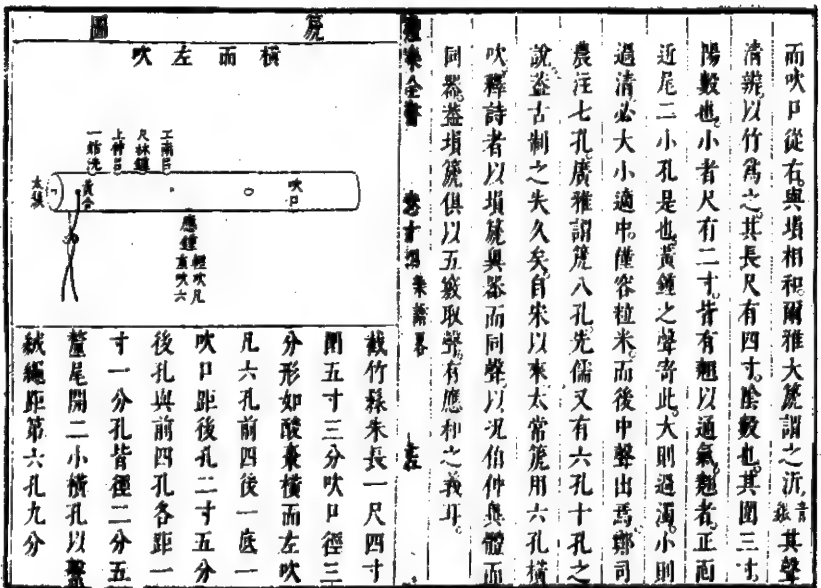 而吹口從右與塤相和爾雅大篪謂之沂音銀其聲
清辨以竹爲之其長尺有四寸陰數也其圍三寸
陽數也小者尺有二寸皆有翹以通氣翹者正面
近尾二小孔是也黃鍾之聲寄此大則過濁小則
過清必大小適中僅容粒米而後中聲出焉鄭司
農注七孔廣雅謂篪八孔先儒又有六孔十孔之
說蓋古制之失久矣自宋以來太常篪用六孔橫
吹釋詩者以塤篪異器而同聲以况伯仲異體而
同器蓋塤篪俱以五竅取聲有應和之義耳
樂全書
樂
篪圖
橫而左吹
吹口
工南呂
尺林鐘
上仲呂
一姑洗
黃合
太簇
應鍾
輕吹凡
重吹六
截竹髹朱長一尺四寸
圍五寸三分吹口徑三
分形如酸棗橫而左吹
凡六孔前四後一底一
吹口距後孔二寸五分
後孔與前四孔各距一
寸一分孔皆徑二分五
釐尾開二小橫孔以繫
絨繩距第六孔九分